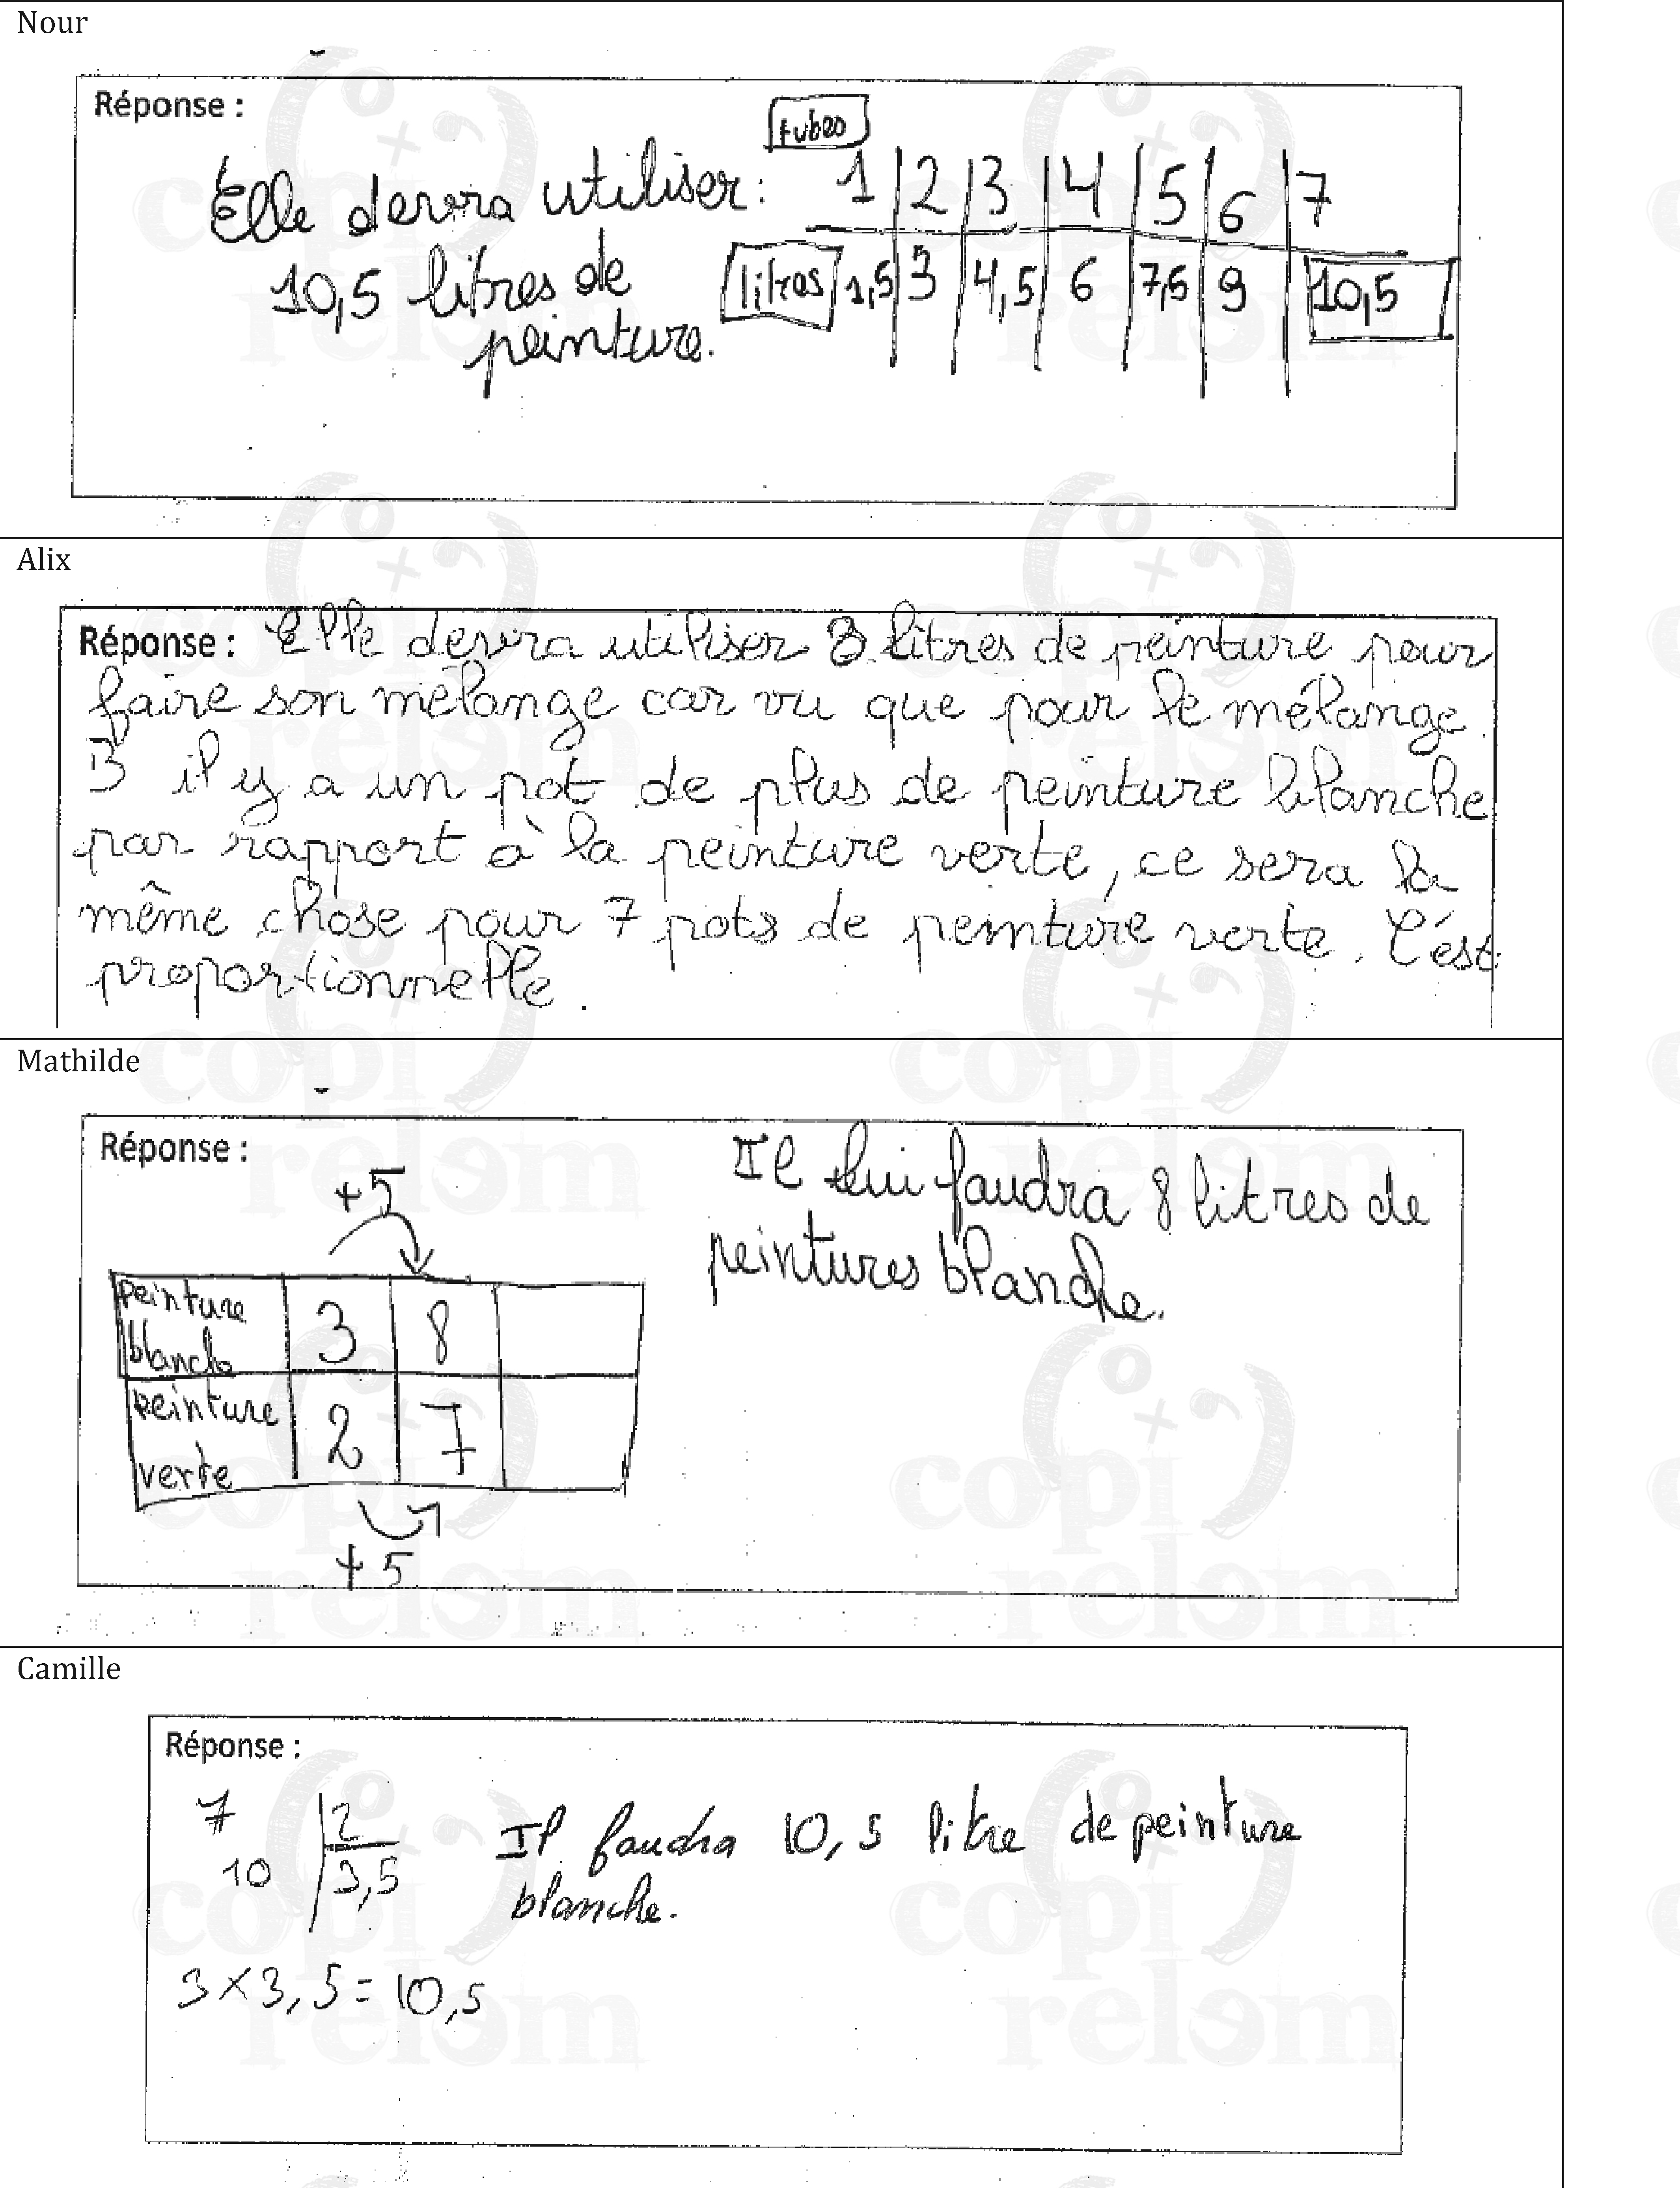 Nour
Réponse :
tubes
Elle devra utiliser : 1 2 3 4 5 6 7
10,5 litres de
peinture.
litres 1,5 3 4,5 6 7,5 9 10,5
Alix
Réponse : Elle devra utiliser 8 litres de peinture pour
faire son mélange car vu que pour le mélange
B il y a un pot de plus de peinture blanche
par rapport à la peinture verte, ce sera la
même chose pour 7 pots de peinture verte. C'est
proportionnelle.
Mathilde
Réponse :
+5
peinture
blanche 3 8
peinture
verte 2 7
+5
Il lui faudra 8 litres de
peintures blanche.
Camille
Réponse :
7 2
10 3,5
3 × 3,5 = 10,5
Il faudra 10,5 litre de peinture
blanche.
copi
relem